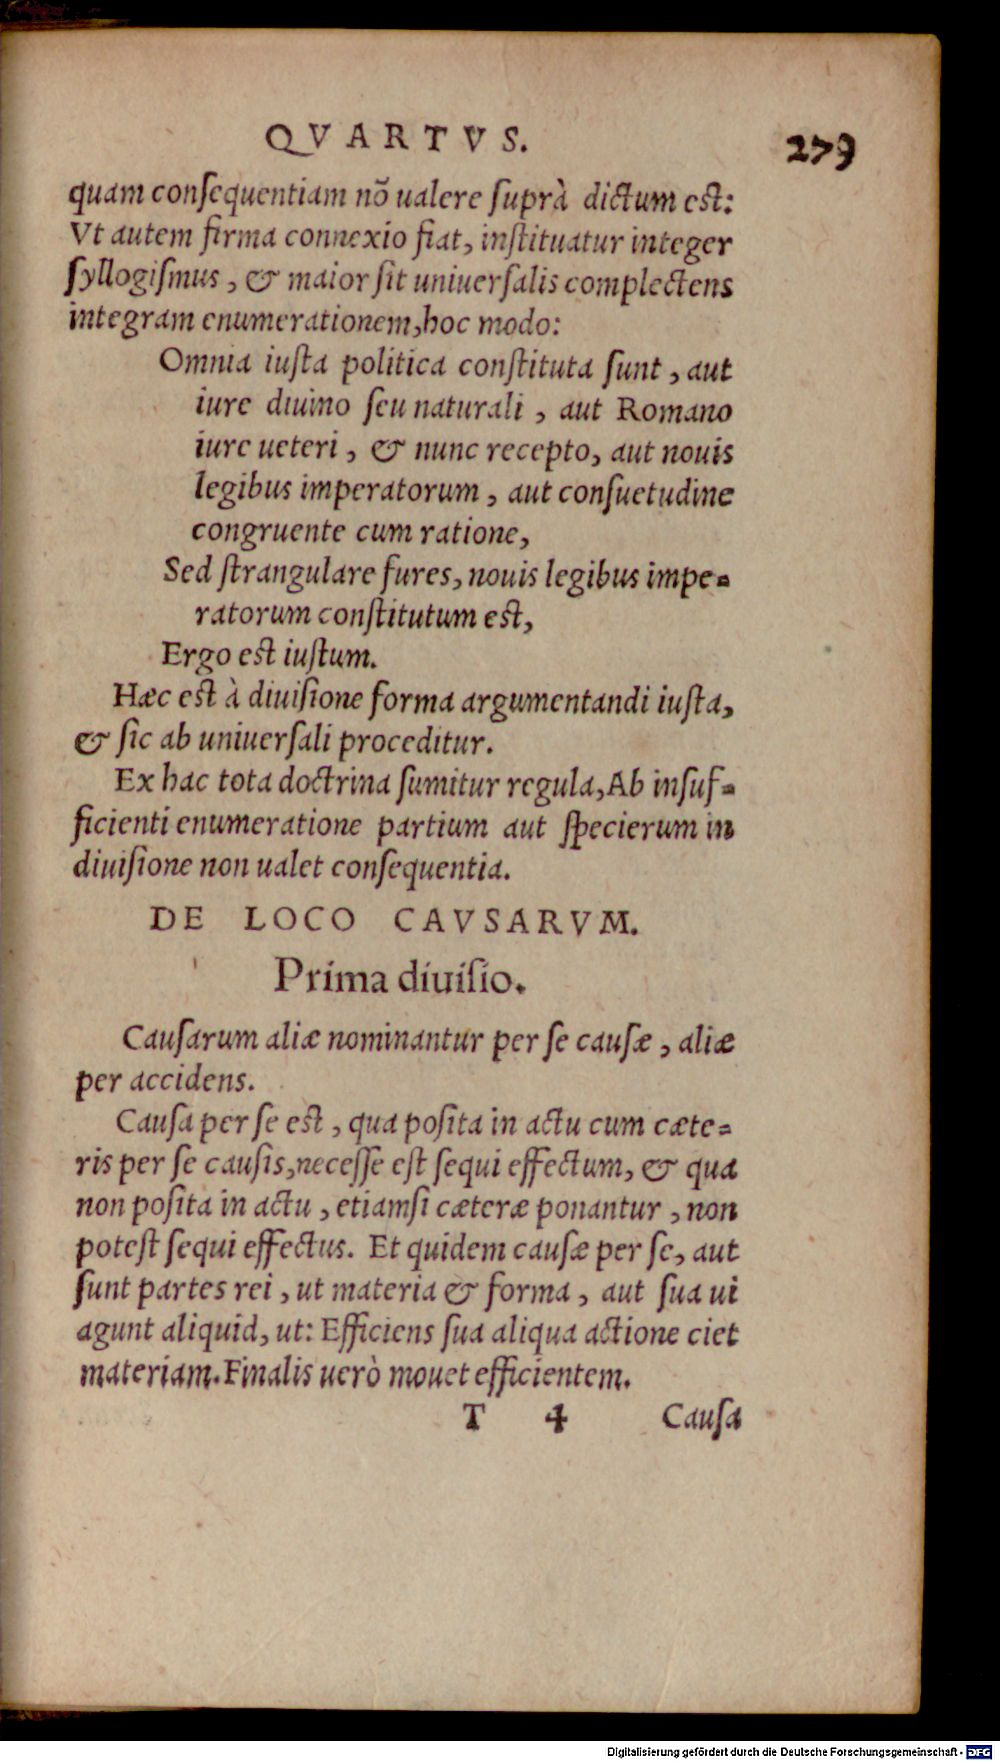 QVARTVS. 279
quam conſequentiam nõ ualere ſuprà dictum est:
Vt autem firma connexio fiat, inſtituatur integer
ſyllogiſmus, & maior ſit uniuerſalis complectens
integram enumerationem, hoc modo:
Omnia iuſta politica conſtituta ſunt, aut
iure diuino ſeu naturali, aut Romano
iure ueteri, & nunc recepto, aut nouis
legibus imperatorum, aut conſuetudine
congruente cum ratione,
Sed ſtrangulare fures, nouis legibus impe-
ratorum conſtitutum eſt,
Ergo eſt iuſtum.
Hæc eſt à diuiſione forma argumentandi iuſta,
& ſic ab uniuerſali proceditur.
Ex hac tota doctrina ſumitur regula, Ab inſuf-
ficienti enumeratione partium aut ſpecierum in
diuiſione non ualet conſequentia.
DE LOCO CAVSARVM.
Prima diuiſio.
Cauſarum aliæ nominantur per ſe cauſæ, aliæ
per accidens.
Cauſa per ſe eſt, qua poſita in actu cum cæte-
ris per ſe cauſis, neceſſe eſt ſequi effectum, & qua
non poſita in actu, etiamſi cæteræ ponantur, non
poteſt ſequi effectus. Et quidem cauſæ per ſe, aut
ſunt partes rei, ut materia & forma, aut ſua ui
agunt aliquid, ut: Efficiens ſua aliqua actione ciet
materiam. Finalis uerò mouet efficientem.
T 4 Cauſa
Digitalisierung gefördert durch die Deutsche Forschungsgemeinschaft - DFG